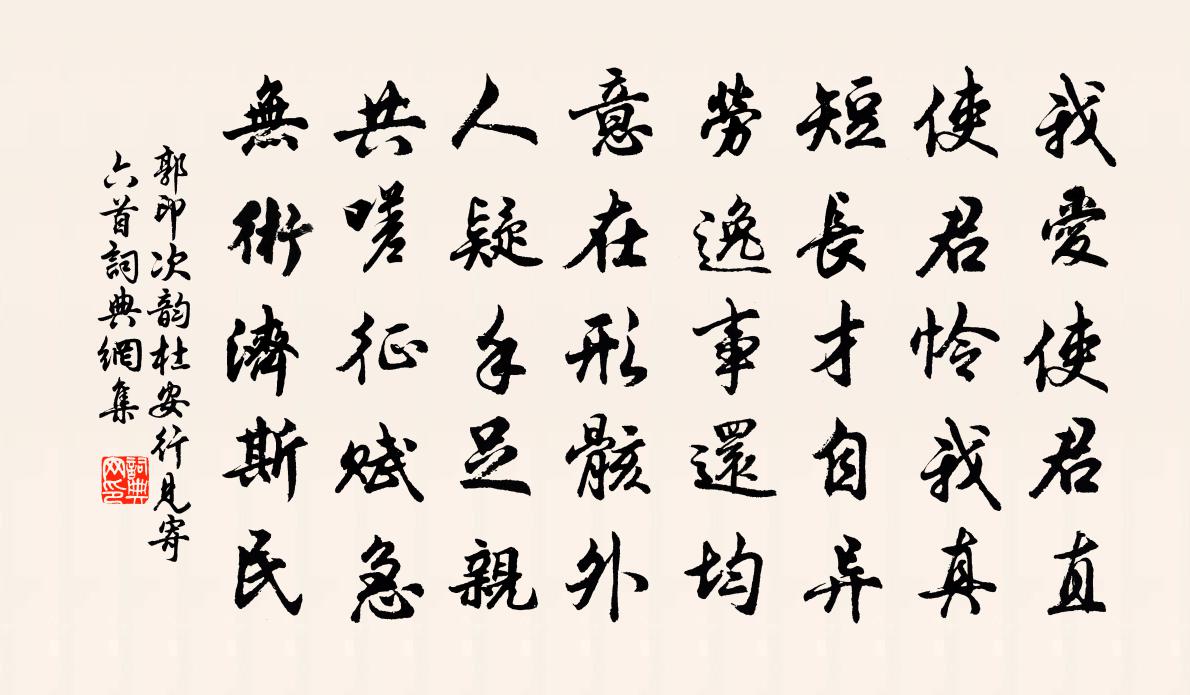 我愛使君直
使君怜我真
短長才自异
勞逸事還均
意在形骸外
人疑手足親
共嗟征赋急
無術濟斯民
郭印次韵杜安行見寄
六首詞典網集
詞典网印